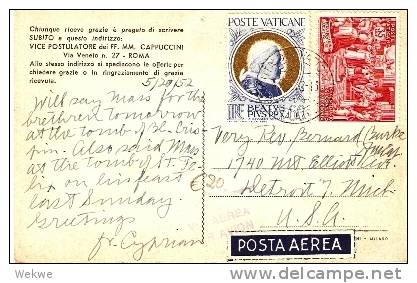 Chiunque riceve grazie è pregato di scrivere
SUBITO a questo indirizzo:
VICE POSTULATORE dei FF. MM. CAPPUCCINI
Via Veneto n. 27 - ROMA
Allo stesso indirizzo si spediscono le offerte per
chiedere grazie o in ringraziamento di grazia
ricevuta.
5/20/52
Will say Mass for the
brethren tomorrow
at the tomb of Bl. Cris-
pin. Also said Mass
at the tomb of St. Fe-
lix on his feast
last Sunday
Greetings
fr. Cyprian
POSTE VATICANE
Very Rev. Bernard Burke
1740 Mt Elliott
Detroit 7, Mich
U.S.A.
€20
POSTA AEREA
MILANO
Wekwe
www.delcampe.net